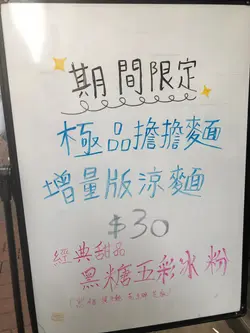 期間限定
極品擔擔麵
增量版涼麵
$30
經典甜品
黑糖五彩冰粉